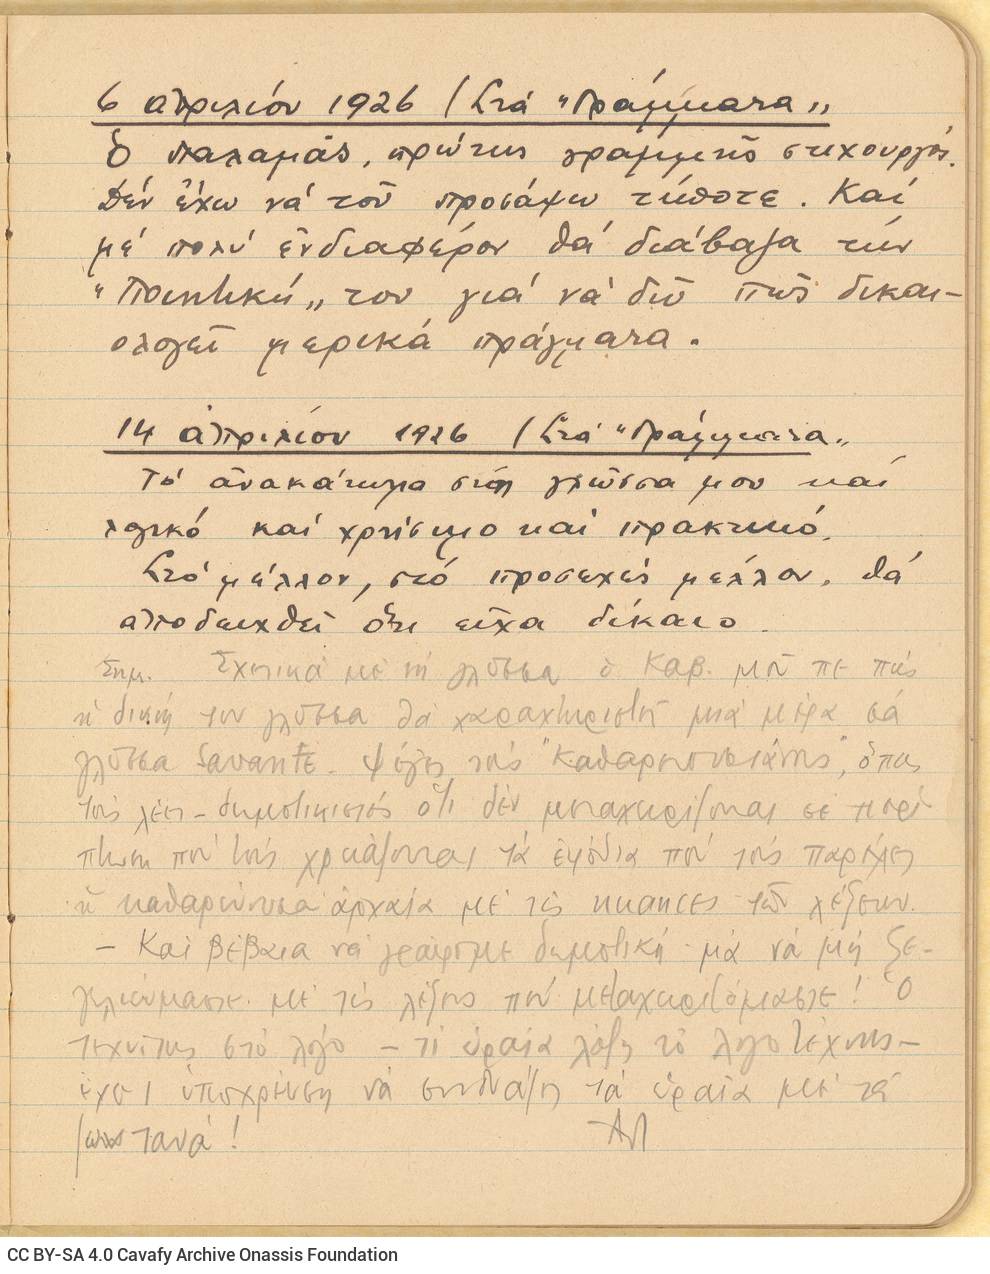 6 ἀπριλίου 1926 / Στά "Γράμματα„
Ὁ Παλαμᾶς, πρώτης γραμμῆς στιχουργός.
Δέν ἔχω νά τοῦ προσάψω τίποτε. Καί
μέ πολύ ἐνδιαφέρον θά διάβαζα τήν
"Ποιητική„ του γιά νά διῶ πῶς δικαι-
ολογεῖ μερικά πράγματα.
14 ἀπριλίου 1926 / Στά "Γράμματα„
Τό ἀνακάτωμα στή γλῶσσα μου καί
λογικό καί χρήσιμο καί πρακτικό.
Στό μέλλον, στό προσεχές μέλλον, θά
ἀποδειχθεῖ ὅτι εἶχα δίκαιο.
Σημ. Σχετικά μέ τή γλῶσσα ὁ Καβ. μοῦ πε πώς
ἡ δική του γλῶσσα θά χαρακτηριστῆ μιά μέρα σά
γλῶσσα Savante. Ψέγει τούς "Καθαρευουσιάνης", ὅπως
τούς λέει - δημοτικιστές ὅτι δέν μεταχειρίζονται σέ περί
πτωση πού τούς χρειάζονται τά ἐφόδια πού τούς παρέχει
ἡ καθαρεύουσα ἀρχαία μέ τίς nuances τῶν λέξεων.
— Καί βέβαια νά γράψομε δημοτική· μά νά μή ξε-
γελιούμαστε μέ τίς λέξεις πού μεταχειριζόμαστε! Ὁ
τεχνίτης στό λόγο — τί ὡραία λέξη τό λογοτέχνης —
ἔχει ὑποχρέωση νά συνδυάζη τά ὡραῖα μέ τά
ζωντανά! ΑΠ
CC BY-SA 4.0 Cavafy Archive Onassis Foundation